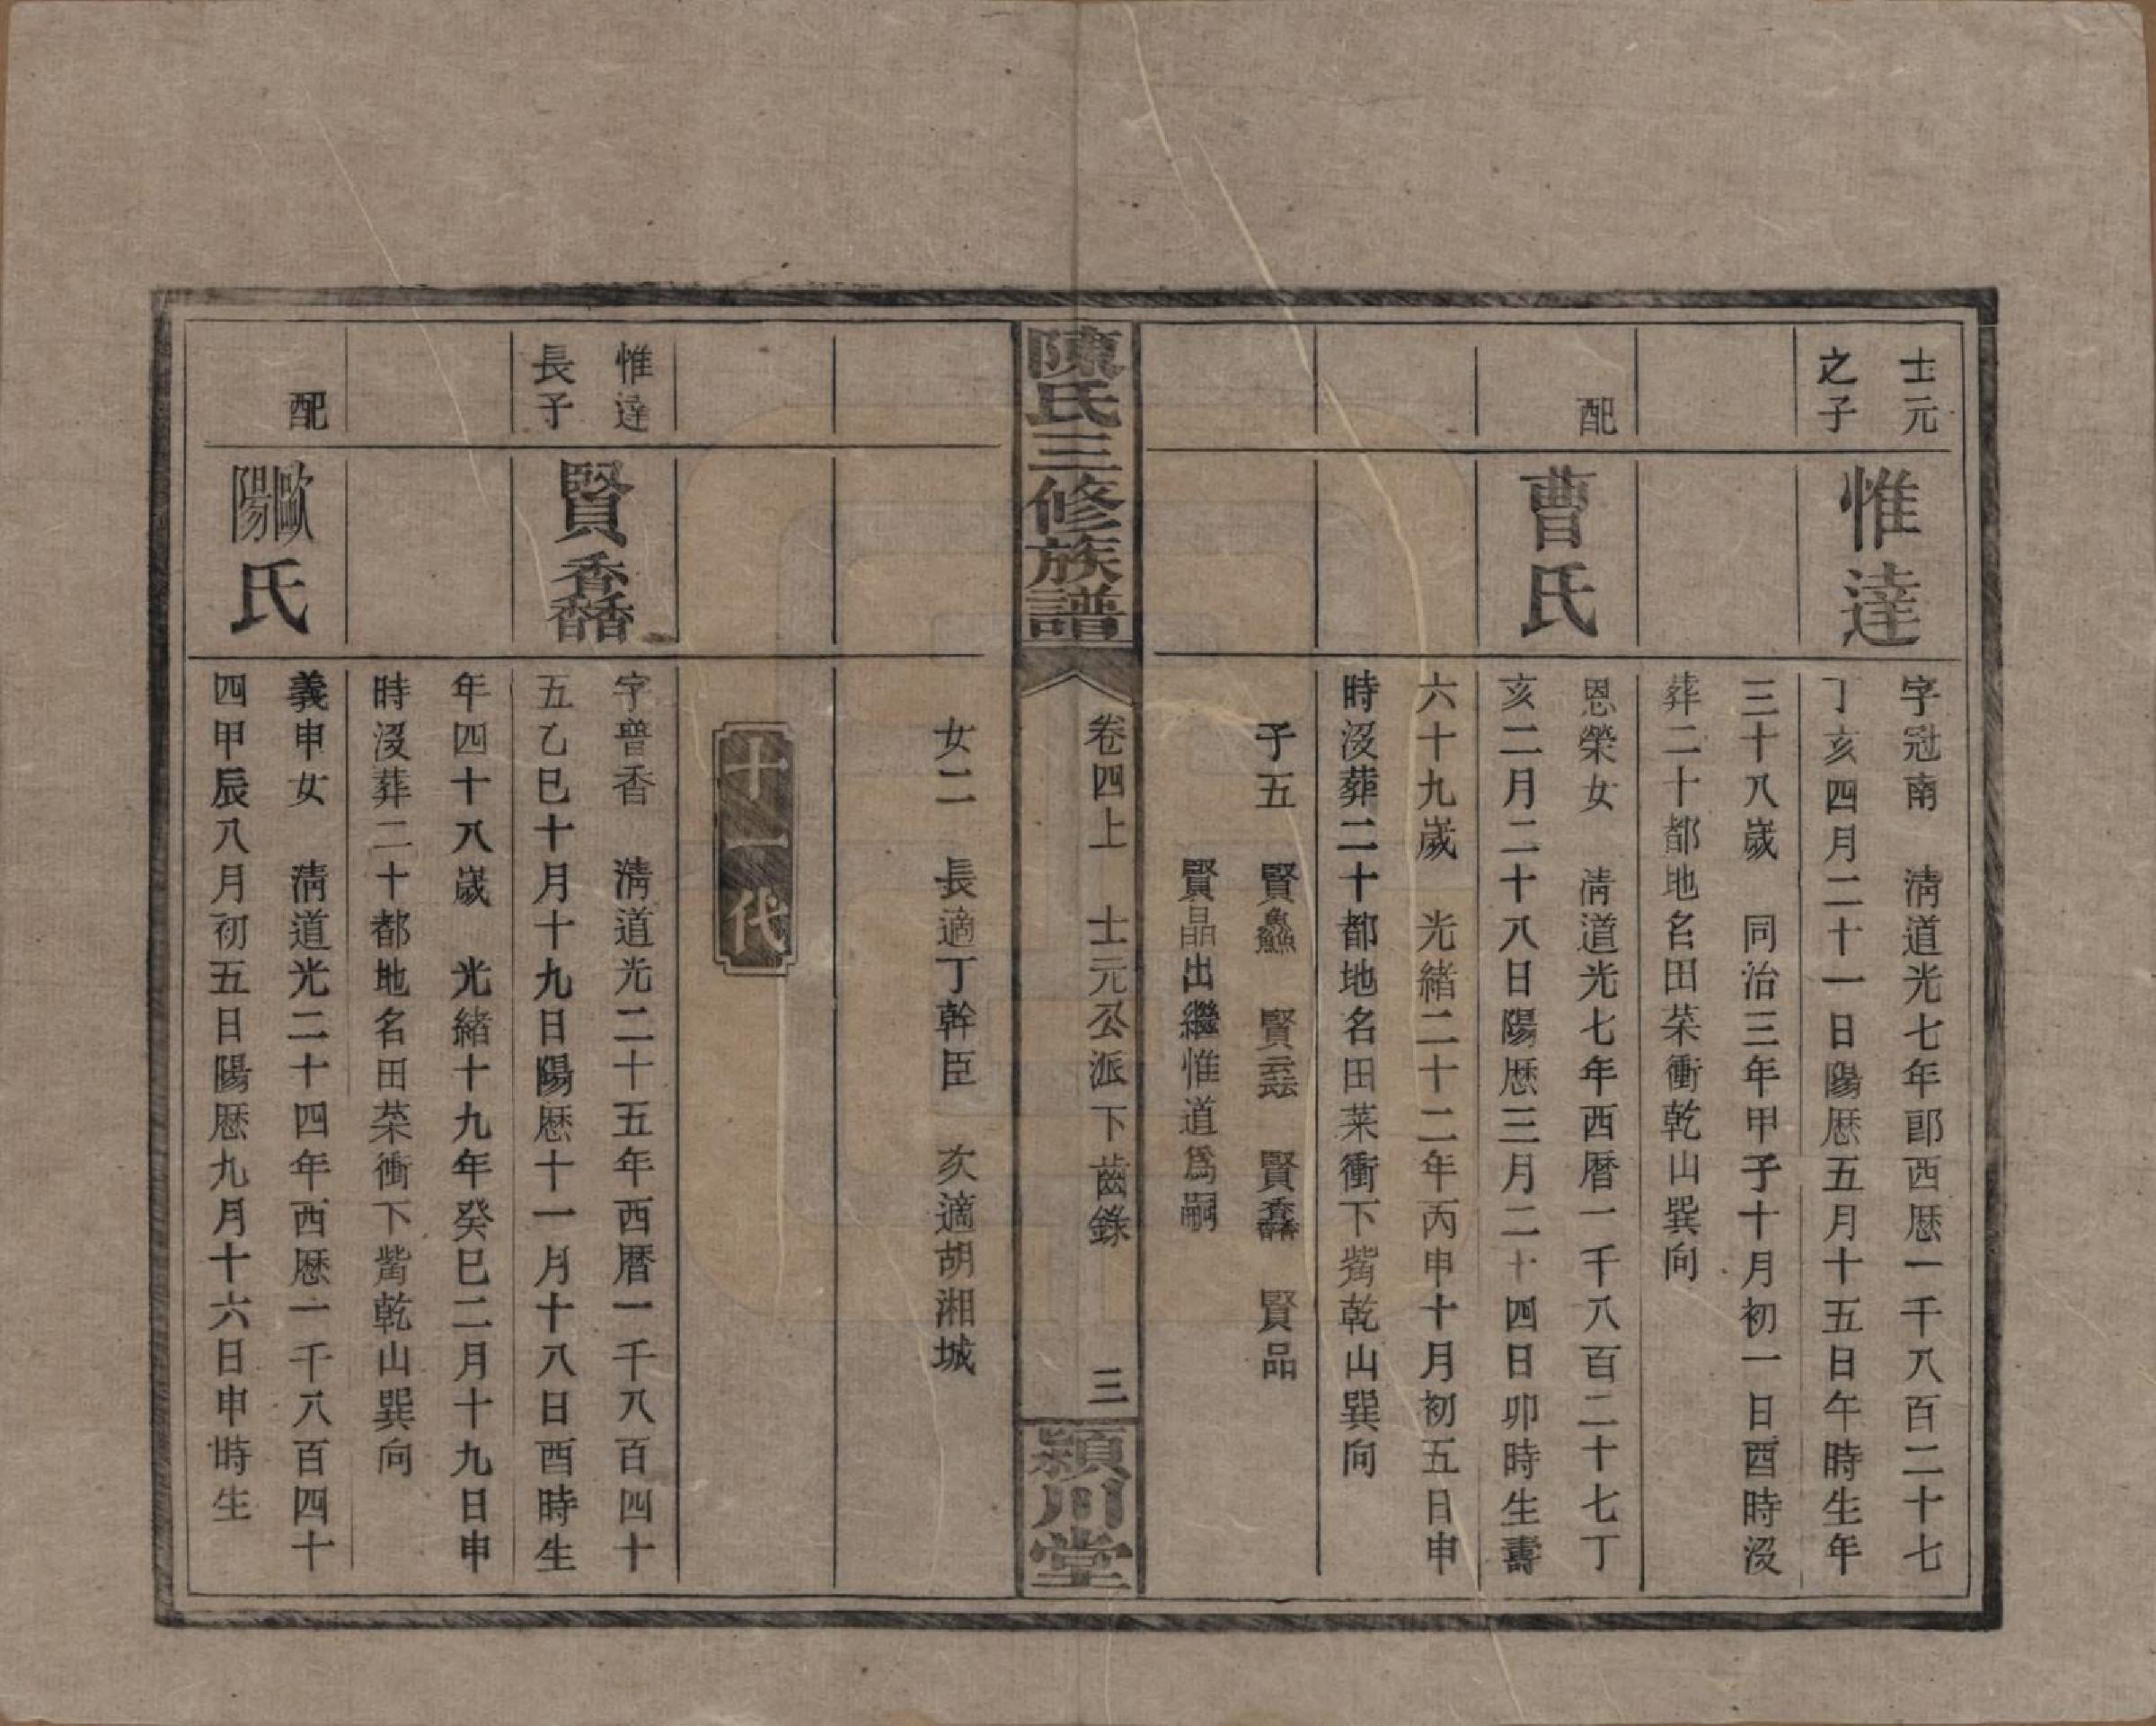 士元
之子
惟達
字冠南　淸道光七年卽西厯一千八百二十七
丁亥四月二十一日陽厯五月十五日午時生年
三十八歲　同治三年甲子十月初一日酉時沒
葬二十都地名田菜衝乾山巽向
配
曹氏
恩榮女　淸道光七年西曆一千八百二十七丁
亥二月二十八日陽厯三月二十四日卯時生壽
六十九歲　光緒二十二年丙申十月初五日申
時沒葬二十都地名田菜衝下嵆乾山巽向
子五　賢鱻　賢雲　賢馫　賢品
賢晶出繼惟道爲嗣
陳氏三修族譜
卷四上　士元公派下齒錄　三
潁川堂
女二　長適丁幹臣　次適胡湘城
十一代
惟達
長子
賢馫
字普香　淸道光二十五年西曆一千八百四十
五乙巳十月十九日陽厯十一月十八日酉時生
年四十八歲　光緒十九年癸巳二月十九日申
時沒葬二十都地名田菜衝下嵆乾山巽向
配
歐陽氏
義申女　淸道光二十四年西厯一千八百四十
四甲辰八月初五日陽厯九月十六日申時生